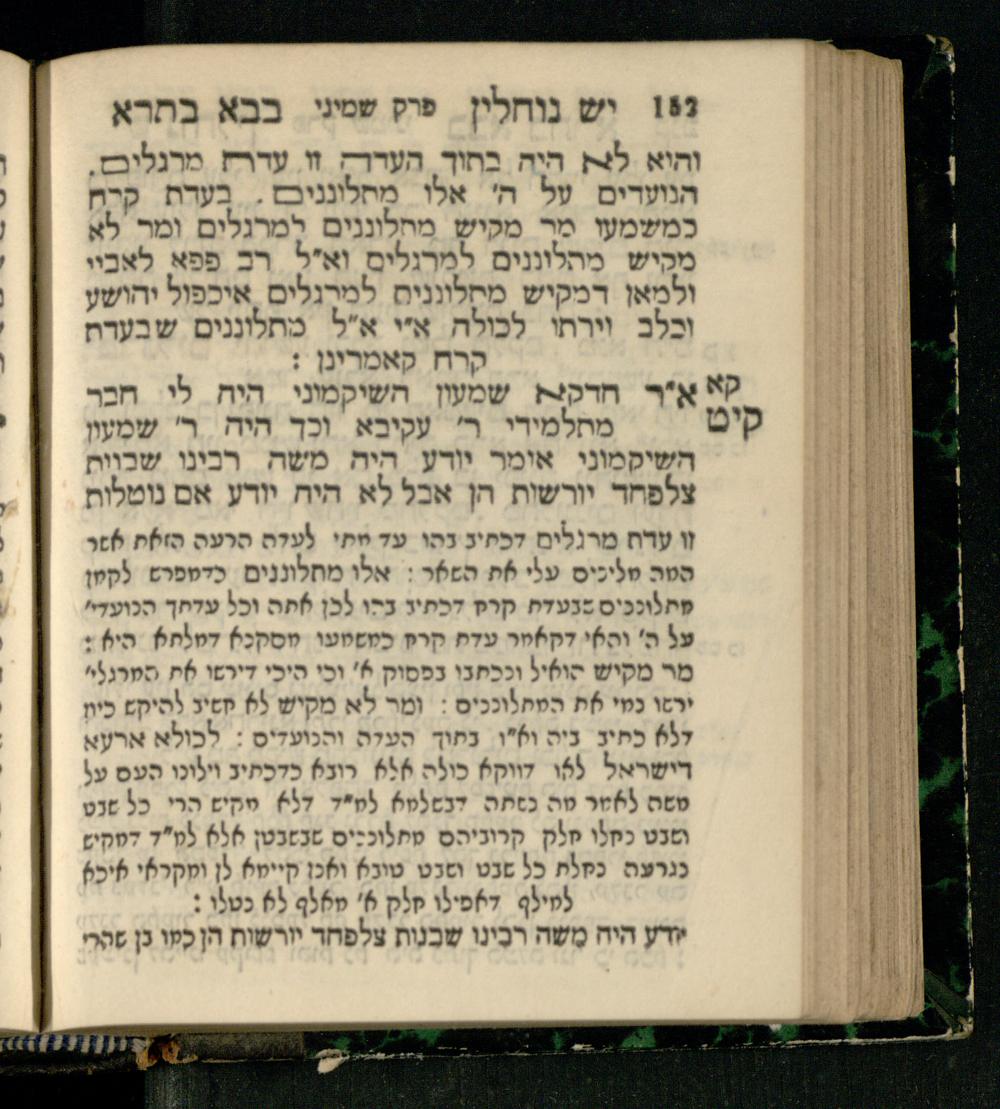 152 יש נוחלין פרק שמיני בבא בתרא
והוא לא היה בתוך העדה זו עדת מרגלים.
הנועדים על ה' אלו מתלוננים. בעדת קרח
כמשמעו מר מקיש מתלוננים למרגלים ומר לא
מקיש מתלוננים למרגלים וא"ל רב פפא לאביי
ולמאן דמקיש מתלוננים למרגלים איכפול יהושע
וכלב וירתו לכולה א"י א"ל מתלוננים שבעדת
קרח קאמרינן :
קא
קיט
א"ר חדקא שמעון השיקמוני היה לי חבר
מתלמידי ר' עקיבא וכך היה ר' שמעון
השיקמוני אומר יודע היה משה רבינו שבנות
צלפחד יורשות הן אבל לא היה יודע אם נוטלות
זו עדת מרגלים דכתיב בהו עד מתי לעדה הרעה הזאת אשר
המה מלינים עלי את השאר : אלו מתלוננים כדמפרש לקמן
מתלוננים שבעדת קרח דכתיב בהו לכן אתה וכל עדתך הנועדי'
על ה' והאי דקאמר עדת קרח כמשמעו מסקנא דמלתא היא :
מר מקיש הואיל ונכתבו בפסוק א' וכי היכי דירשו את המרגלי'
ירשו נמי את המתלוננים : ומר לא מקיש לא חשיב להיקש כיון
דלא כתיב ביה וא"ו בתוך העדה והנועדים : לכולא ארעא
דישראל לאו דווקא כולה אלא רובא כדכתיב וילונו העם על
משה לאמר מה נשתה דבשלמא למ"ד דלא מקיש הרי כל שבט
ושבט נחלו חלק קרוביהם מתלוננים שבשבטן אלא למ"ד דמקיש
נגרעה נחלת כל שבט ושבט טובא ואנן קיימא לן ומקראי איכא
למילף דאפילו חלק א' מאלף לא נטלו :
יודע היה משה רבינו שבנות צלפחד יורשות הן כמו בן שהרי